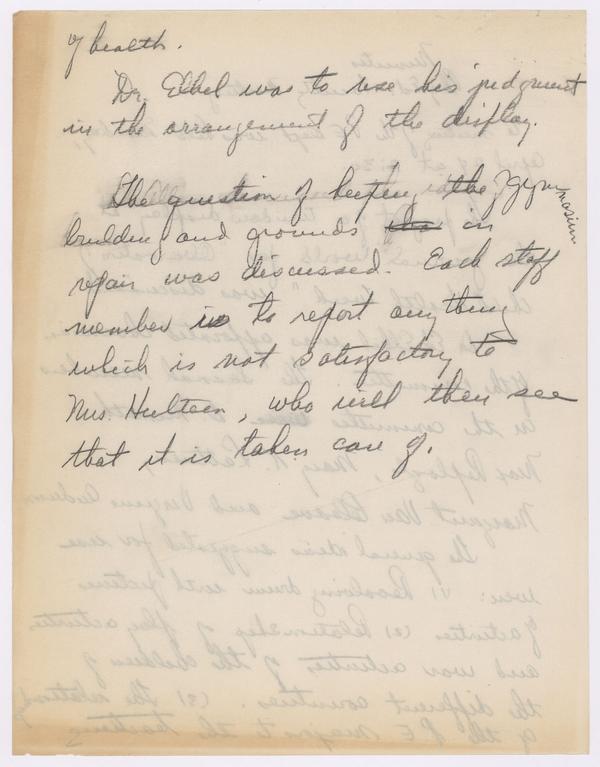 of health.
Dr. Elbel was to use his judgment
in the arrangement of the display.
The question of keeping the Gymnasium
building and grounds in
repair was discussed. Each staff
member is to report anything
which is not satisfactory to
Mrs. Hulteen, who will then see
that it is taken care of.